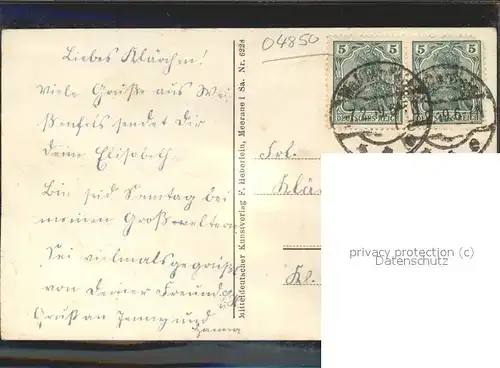 Liebes Klärchen!
Viele Grüße aus Wei-
ßenfels sendet Dir
Deine Elisabeth
Bin seid Samstag bei
meinen Großeltern
Sei vielmals gegrüßt
von Deiner Freundin
Gruß an Jenny und
Mitteldeutscher Kunstverlag F. Heberlein, Meerane i Sa. Nr. 6228
04850
5 5
5 5
DEUTSCHES REICH
Frl.
Klä
Kl.
privacy protection (c)
Datenschutz